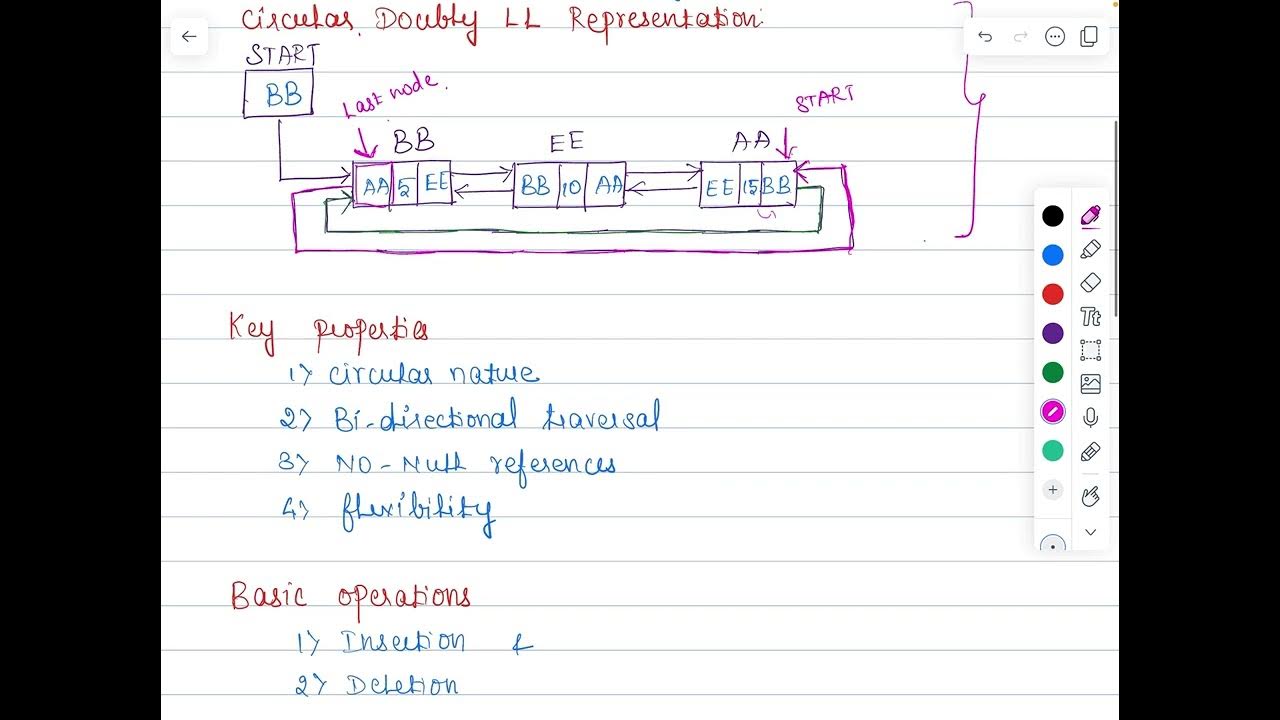 Circular Doubly LL Representation:
START
BB
Last node.
START
BB EE AA
AA 5 EE BB 10 AA EE 15 BB
Key properties
1) circular nature
2) Bi-directional traversal
3) NO-Null references
4) flexibility
Basic operations
1) Insertion &
2) Deletion
Tt